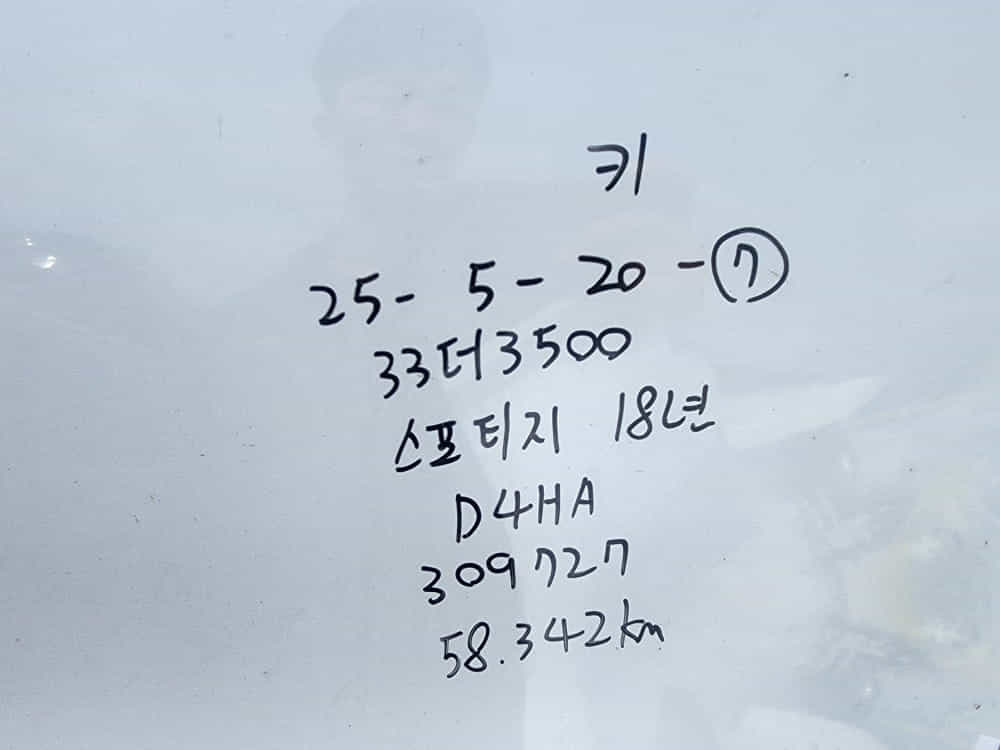 키
25-5-20-⑦
33더3500
스포티지 18년
D4HA
309727
58.342km